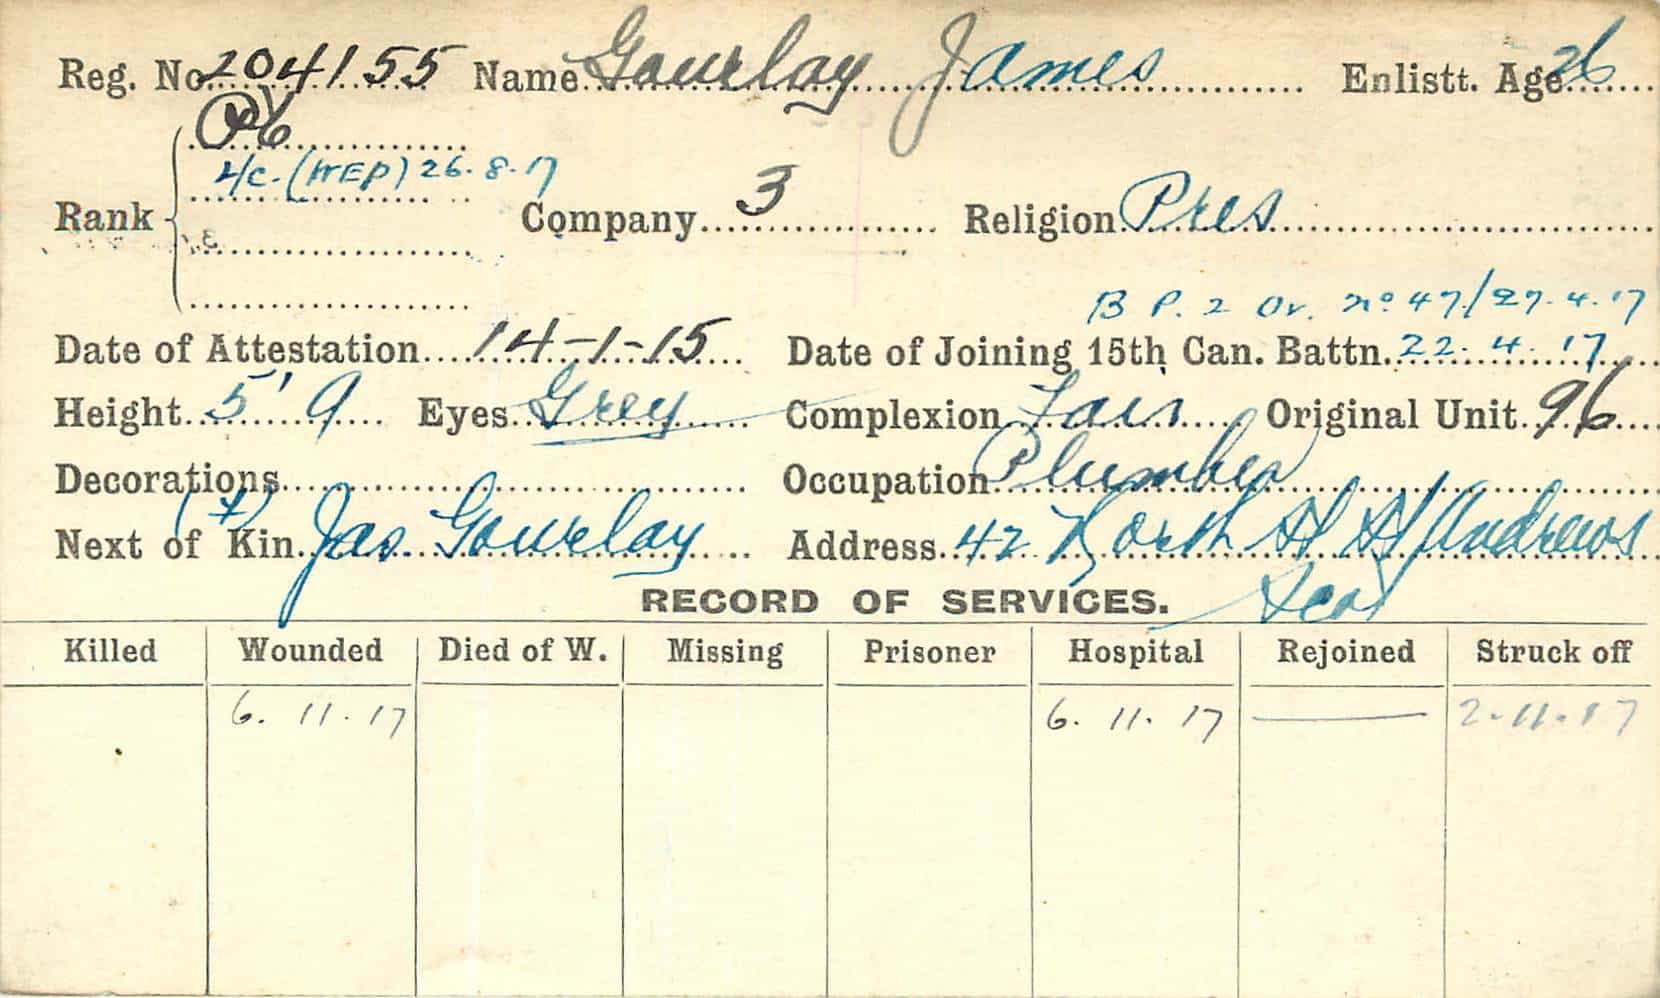 Reg. No. 204155 Name Gourlay James Enlistt. Age 26
Pte
L/C. (WEP) 26.8.17
Rank Company 3 Religion Pres
B P. 2 Or. No 47/27.4.17
Date of Attestation 14-1-15 Date of Joining 15th Can. Battn. 22.4.17
Height 5' 9 Eyes Grey Complexion Fair Original Unit 96
Decorations Occupation Plumber
Next of Kin Jas Gourlay Address 42 North St St Andrews
Scot
RECORD OF SERVICES.
Killed Wounded Died of W. Missing Prisoner Hospital Rejoined Struck off
6.11.17 6.11.17 — 2.11.17